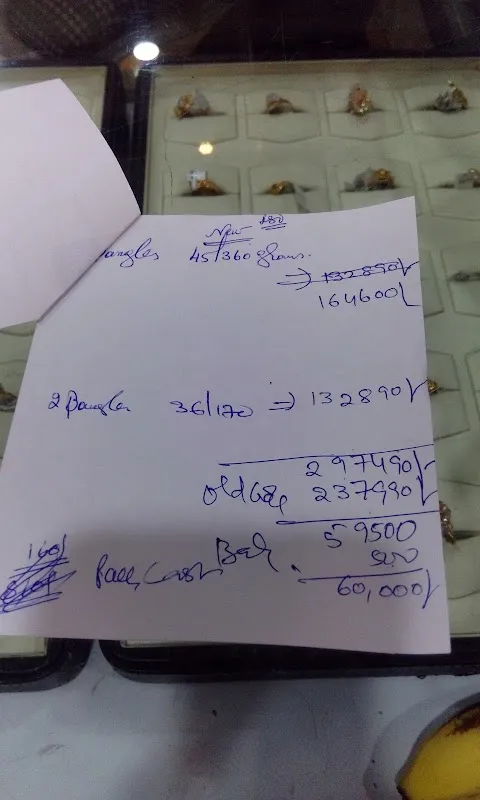 New 480
angles 45/360 grams.
⇒ 132890/-
164600/-
2 Bangles 36/170 ⇒ 132890/-
297490/-
old Gol 237990/-
Bal. 59500
500
160/-
Rec, Cash 60,000/-